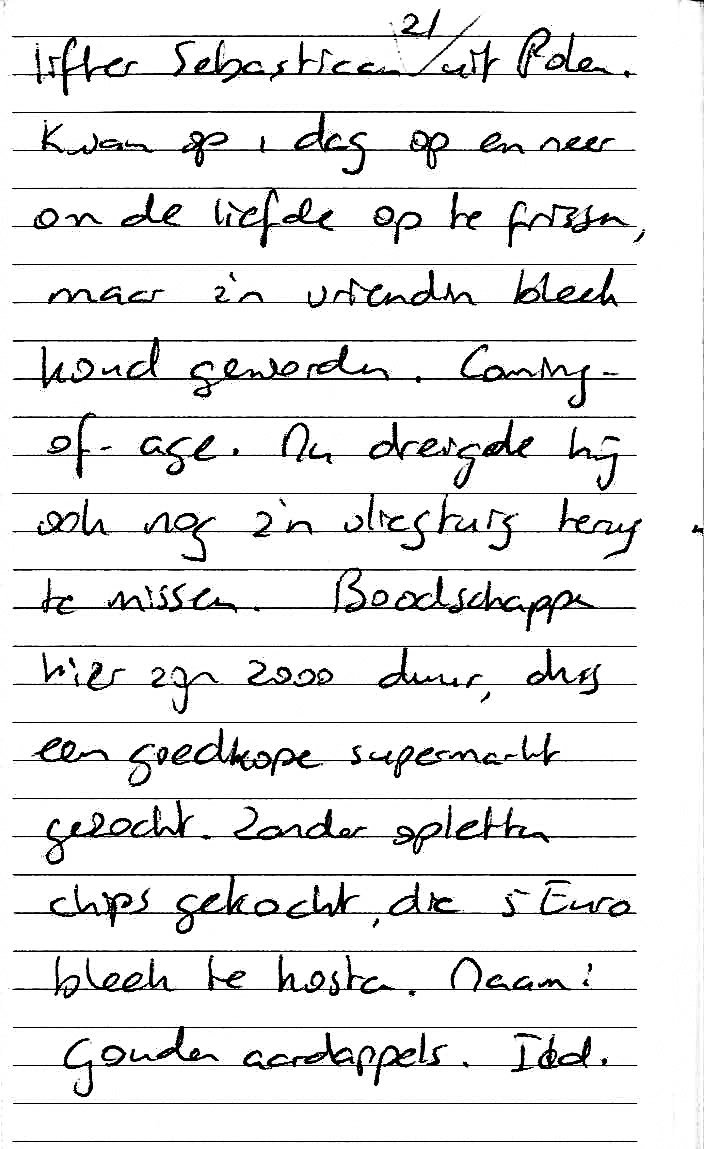 21
lifter Sebastiaan / uit Polen.
Kwam op 1 dag op en neer
om de liefde op te frissen,
maar z'n vriendin bleek
koud geworden. Coming-
of-age. Nu dreigde hij
ook nog z'n vliegtuig terug
te missen. Boodschappen
hier zijn zooo duur, dus
een goedkope supermarkt
gezocht. Zonder opletten
chips gekocht, die 5 Euro
bleek te kosten. Naam:
Gouden aardappels.